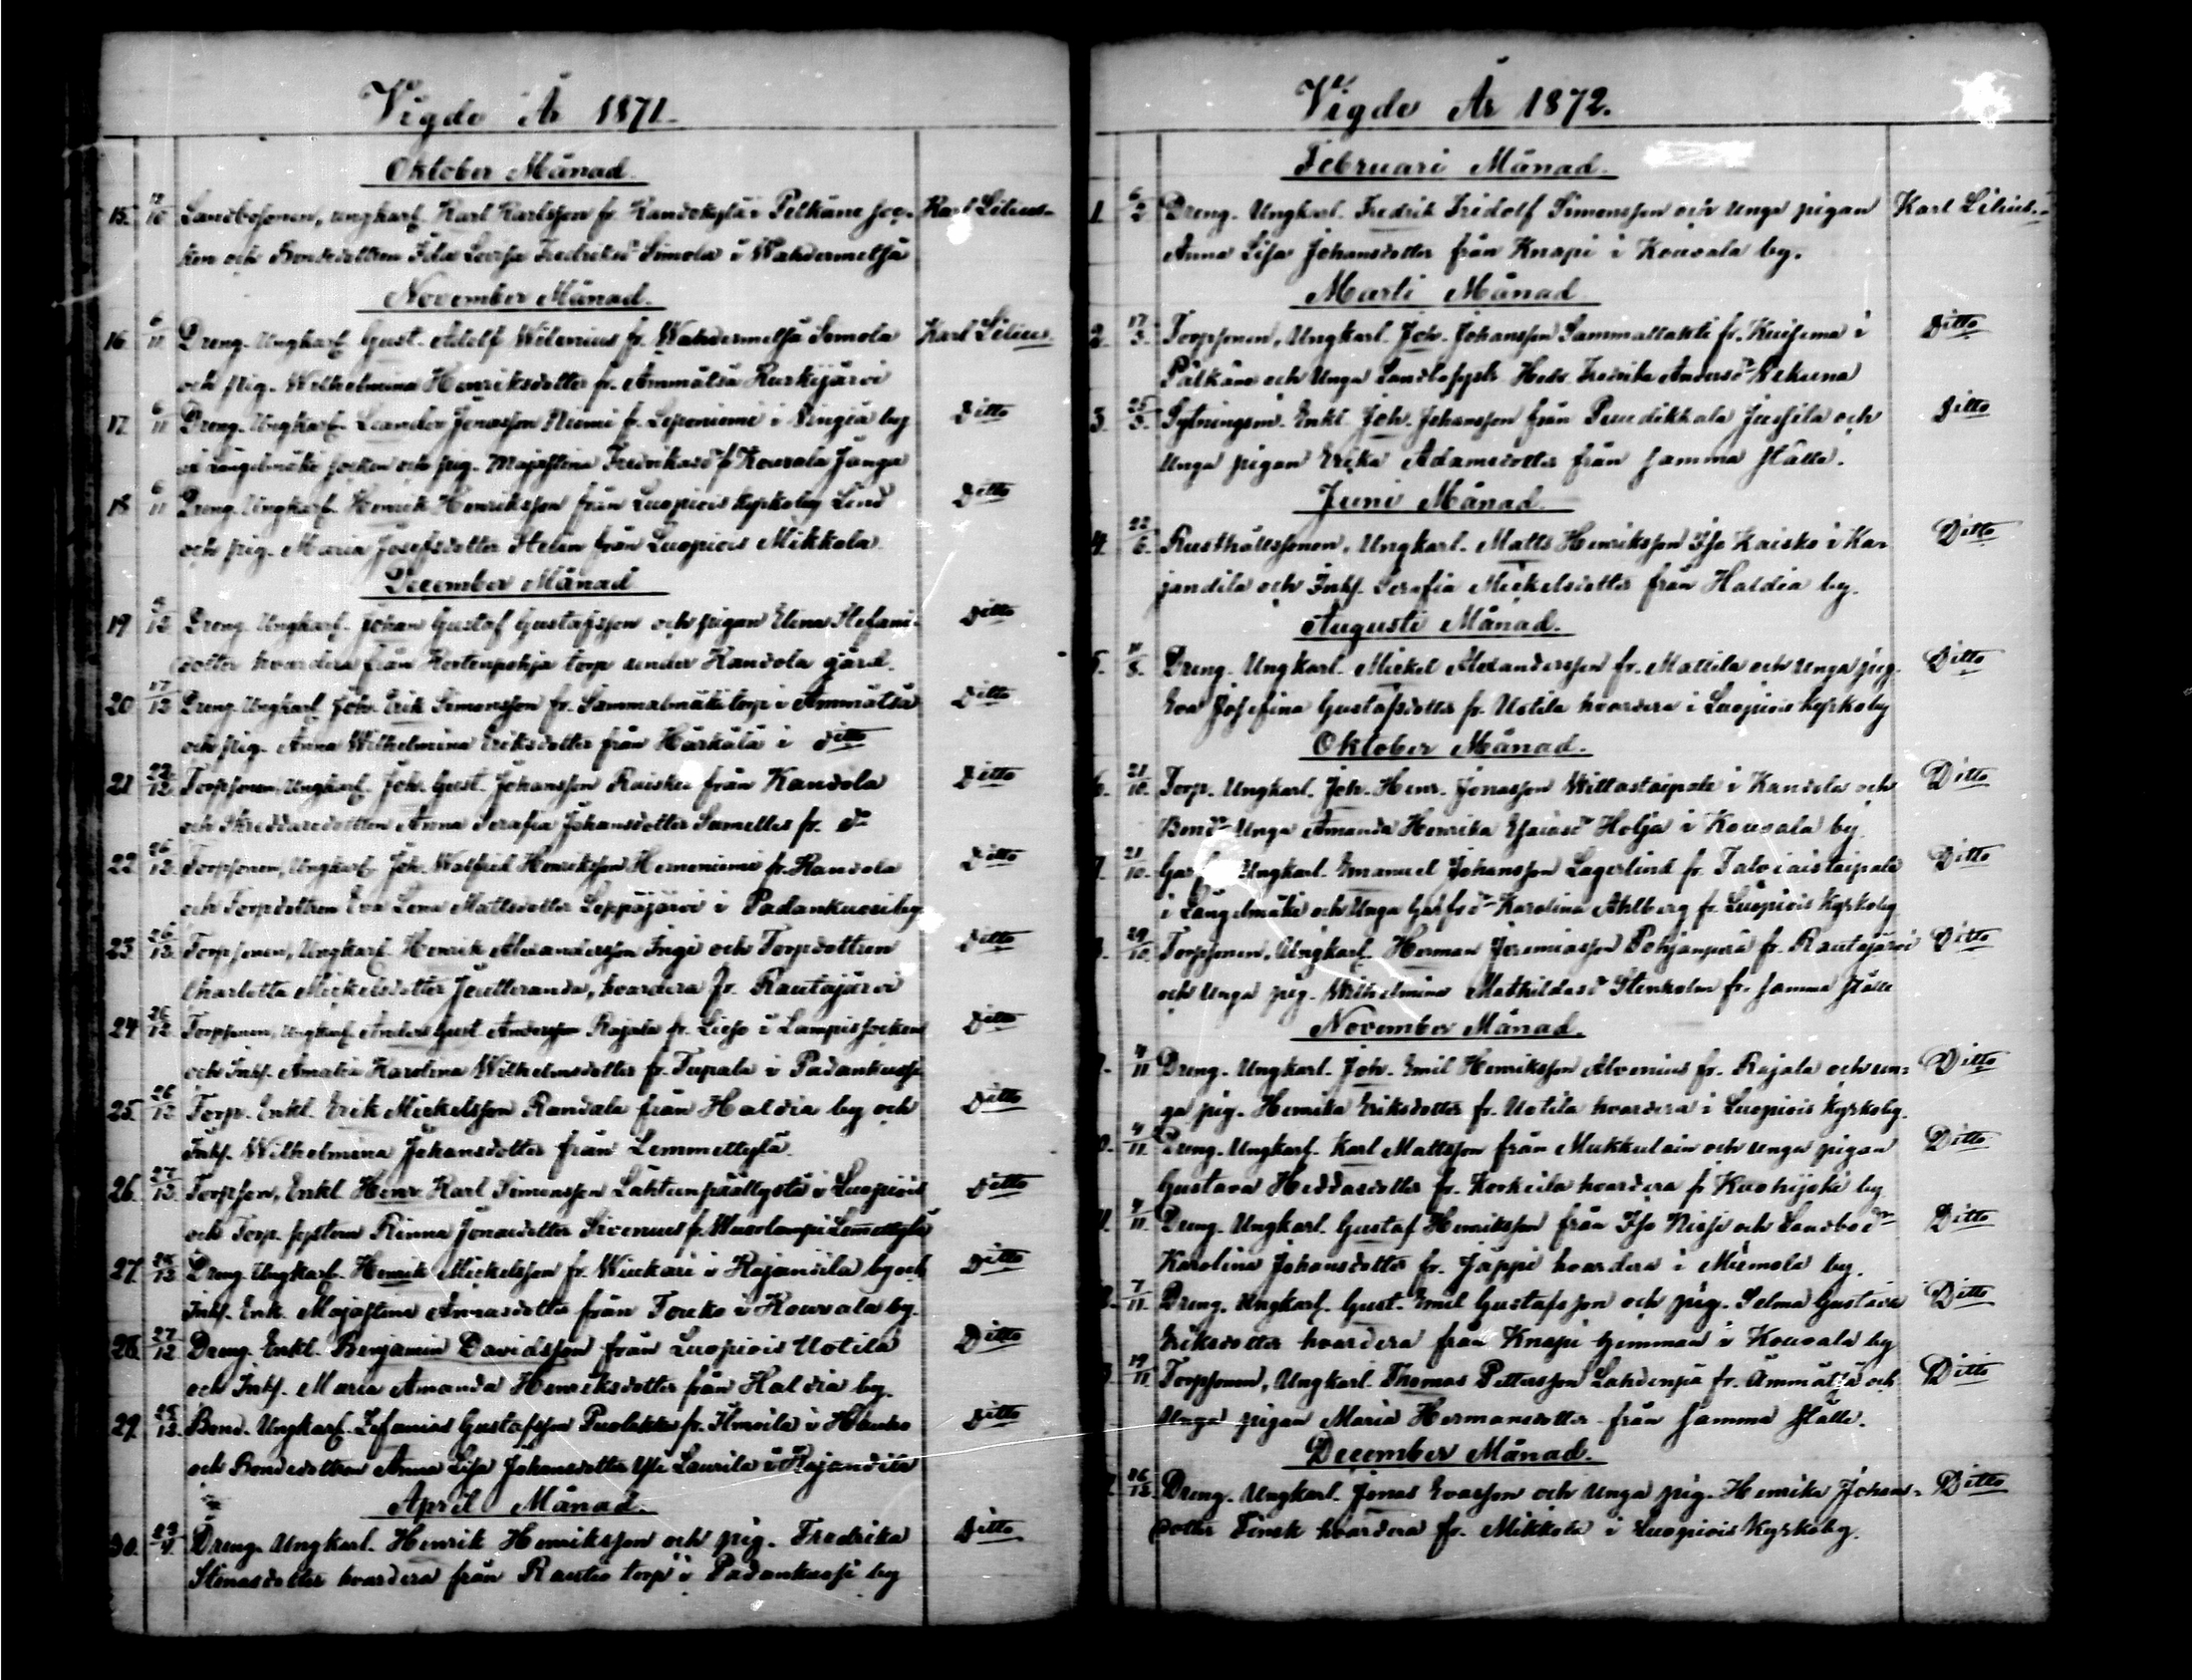 Vigde År 1871.
Oktober Månad.
15. 12/10 Landbosonen, ungkarl. Karl Karlsson fr. i Pelkäne soc- Karl Lilius.
ken och Bondedottren Ida Lovisa Fredriksd Simola i Wahdermetsä
November Månad.
16. 6/11 Dreng. Ungkarl. Gust. Adolf Wilenius fr. Wahdermetsä Simola Karl Lilius.
och pig. Wilhelmina Henriksdotter fr. Ämmätsä Kurkijärvi
17. 6/11 Dreng. Ungkarl. Leander Jonasson Niemi fr. Leponiemi i by Ditto
Längelmäki socken och pig. Majastina fr Kouvala Janga
18 6/11 Dreng. Ungkarl. Henrik Henriksson från Luopiois kyrkoby Lind Ditto
och pig. Maria Josefsdotter Stelin från Luopiois Mikkola.
December Månad
19 /12 Dreng. Ungkarl. Johan Gustaf Gustafsson och pigan Elena Stefani- Ditto
dotter hvardera från Kortenpohja torp under Kandola gård.
20 17/12 Dreng. Ungkarl. Joh. Erik Simonsson fr. Sammalmäki torp i Ämmätsä Ditto
och pig. Anna Wilhelmina Eriksdotter från Härkälä i ditto
21 22/12 Torpsonen, Ungkarl. Joh. Gust. Johansson Raiskio från Kandola Ditto
och Skreddaredottren Anna Serafia Johansdotter Samelles fr. do
22. 26/12. Torpsonen, Ungkarl. Joh. Walfrid Henriksson Hemeniemi fr. Kandola Ditto
och Torpdottren Eva Lena Mattsdotter Leppäjärvi i Padankuosi by
23. 26/12. Torpsonen, Ungkarl. Henrik Alexandersson Ingi och Torpdottren Ditto
Charlotta Mickelsdotter Jouttaranda, hvardera fr. Rautajärvi
24. 26/12. Torpsonen, Ungkarl. Anders Gust. Andersson Rajala fr. Lieso i Lampis socken Ditto
och Inhs. Amalia Karolina Wilhelmsdotter fr. Tupala i Padankuosi
25. 26/12 Torp. Enkl. Erik Mickelsson Randala från Haldia by och Ditto
Inhs. Wilhelmina Johansdotter från Lemmettylä.
26. 27/12 Torpson, Enkl. Henr. Karl Simonsson i Luopiois Ditto
och Torp. systern Rinna Jonaedotter Sirenius fr. Lemmettylä
27. 26/12 Dreng. Ungkarl. Henrik Mickelsson fr. Wiukari i Kajandila by och Ditto
Inhs. Enk. Majastina Annasdotter från Torcko i Kouvala by.
28. 27/12 Dreng. Enkl. Benjamin Davidsson från Luopiois Uotila Ditto
och Inhs. Maria Amanda Henriksdotter från Haldia by.
29. 28/12. Bond. Ungkarl. Zefanias Gustafsson fr. Ilmoila i Hauho Ditto
och Bondedottren Anna Lisa Johansdotter Yli Laurila i Kajandila
April Månad.
30. 29/4. Dreng. Ungkarl. Henrik Henriksson och pig. Fredrika Ditto
Stinasdotter hvardera från Rautio torp i Padankuosi by
Vigde År 1872.
Februari Månad.
1 6/2 Dreng. Ungkarl. Fredrik Fridolf Simonsson och Unga pigan Karl Lilius.
Anna Lisa Johansdotter från Knapi i Kouvala by.
Marti Månad
2. 17/3. Torpsonen, Ungkarl. Joh. Johansson Sammallahti fr. Kuisema i Ditto
Pälkäne och Unga Hedv. Fredrika Andersd
3. 25/3. Sytningsm. Enkl. Joh. Johansson från Puudikkala Jussila och Ditto
Unga pigan Erika Adamsdotter från samma ställe.
Juni Månad
4. 22/6. Rusthållssonen, Ungkarl. Matts Henriksson Iso Kaisko i Ka- Ditto
jandila och Inhs. Serafia Mickelsdotter från Haldia by.
Augusti Månad.
5. /8. Dreng. Ungkarl. Mickel Alexandersson fr. Mattila och Unga pig. Ditto
Eva Josefina Gustafsdotter fr. Uotila hvardera i Luopiois kyrkoby
Oktober Månad.
6. 21/10. Torp. Ungkarl. Joh. Henr. Jonasson Wittastaipale i Kandola och Ditto
Bondd Unga Amanda Henrika Esaiasd Holja i Kouvala by
7. 21/10. Ungkarl. Emanuel Johansson Lagerlind fr. Talviaistaipale Ditto
i Längelmäki och Unga Karolina Ahlberg fr. Luopiois Kyrkoby
29/10. Torpsonen, Ungkarl. Herman Jeremiasson Pohjanperä fr. Rautajärvi Ditto
och Unga pig. Wilhelmina Mathildasd Stenholm fr. samma ställe
November Månad.
4/11 Dreng. Ungkarl. Joh. Emil Henriksson Alvenius fr. Rajala och un- Ditto
ga pig. Henrika Eriksdotter fr. Uotila hvardera i Luopiois kyrkoby.
4/11. Dreng. Ungkarl. Karl Mattsson från Mukkulain och unga pigan Ditto
Gustava Heddasdotter fr. Korkeila hvardera fr Kuohijoki by
/11. Dreng. Ungkarl. Gustaf Henriksson från Iso Nissi och Landbod Ditto
Karolina Johansdotter fr. Jäppi hvardera i Miemola by.
7/11. Dreng. Ungkarl. Gust. Emil Gustafsson och pig. Selma Gustava Ditto
Eriksdotter hvardera från Knapi hemman i Kouvala by
19/11 Torpsonen, Ungkarl. Thomas Pettersson Lahdenpä fr. Ämmätsä och Ditto
Unga pigan Maria Hermansdotter från samma ställe.
December Månad.
26/12. Dreng. Ungkarl. Jonas Evasson och Unga pig. Henrika Johans- Ditto
dotter Finsk hvardera fr. Mikkola i Luopiois Kyrkoby.